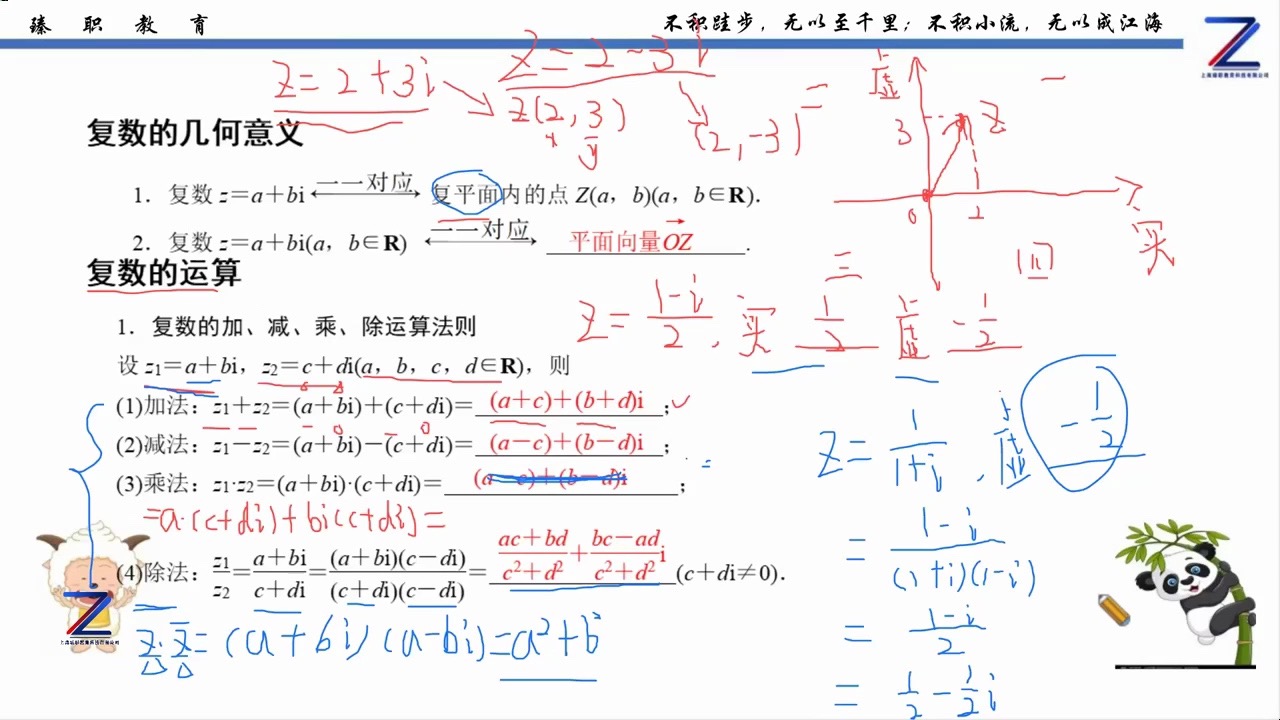 臻 职 教 育
不积跬步，无以至千里；不积小流，无以成江海
上海臻职教育科技有限公司
z=2+3i
z=2-3i
z(2, 3)
x y
(2, -3)
虚
一
二
3
z
0
2
实
三
四
复数的几何意义
1．复数 z=a+bi 一一对应 复平面内的点 Z(a，b)(a，b∈R).
2．复数 z=a+bi(a，b∈R) 一一对应 平面向量OZ.
复数的运算
z=(1-i)/2, 实 1/2 虚 -1/2
1．复数的加、减、乘、除运算法则
设 z₁=a+bi，z₂=c+di(a，b，c，d∈R)，则
(1)加法：z₁+z₂=(a+bi)+(c+di)= (a+c)+(b+d)i ；
(2)减法：z₁-z₂=(a+bi)-(c+di)= (a-c)+(b-d)i ；
(3)乘法：z₁·z₂=(a+bi)·(c+di)= (a-c)+(b-d)i ；
=a·(c+di)+bi(c+di)=
(4)除法：z₁/z₂=(a+bi)/(c+di)=(a+bi)(c-di)/(c+di)(c-di)= (ac+bd)/(c²+d²)+(bc-ad)/(c²+d²)i (c+di≠0).
z·z̄=(a+bi)(a-bi)=a²+b²
z=1/(1+i), 虚 -1/2
=(1-i)/(1+i)(1-i)
=(1-i)/2
=1/2-1/2i
上海臻职教育科技有限公司